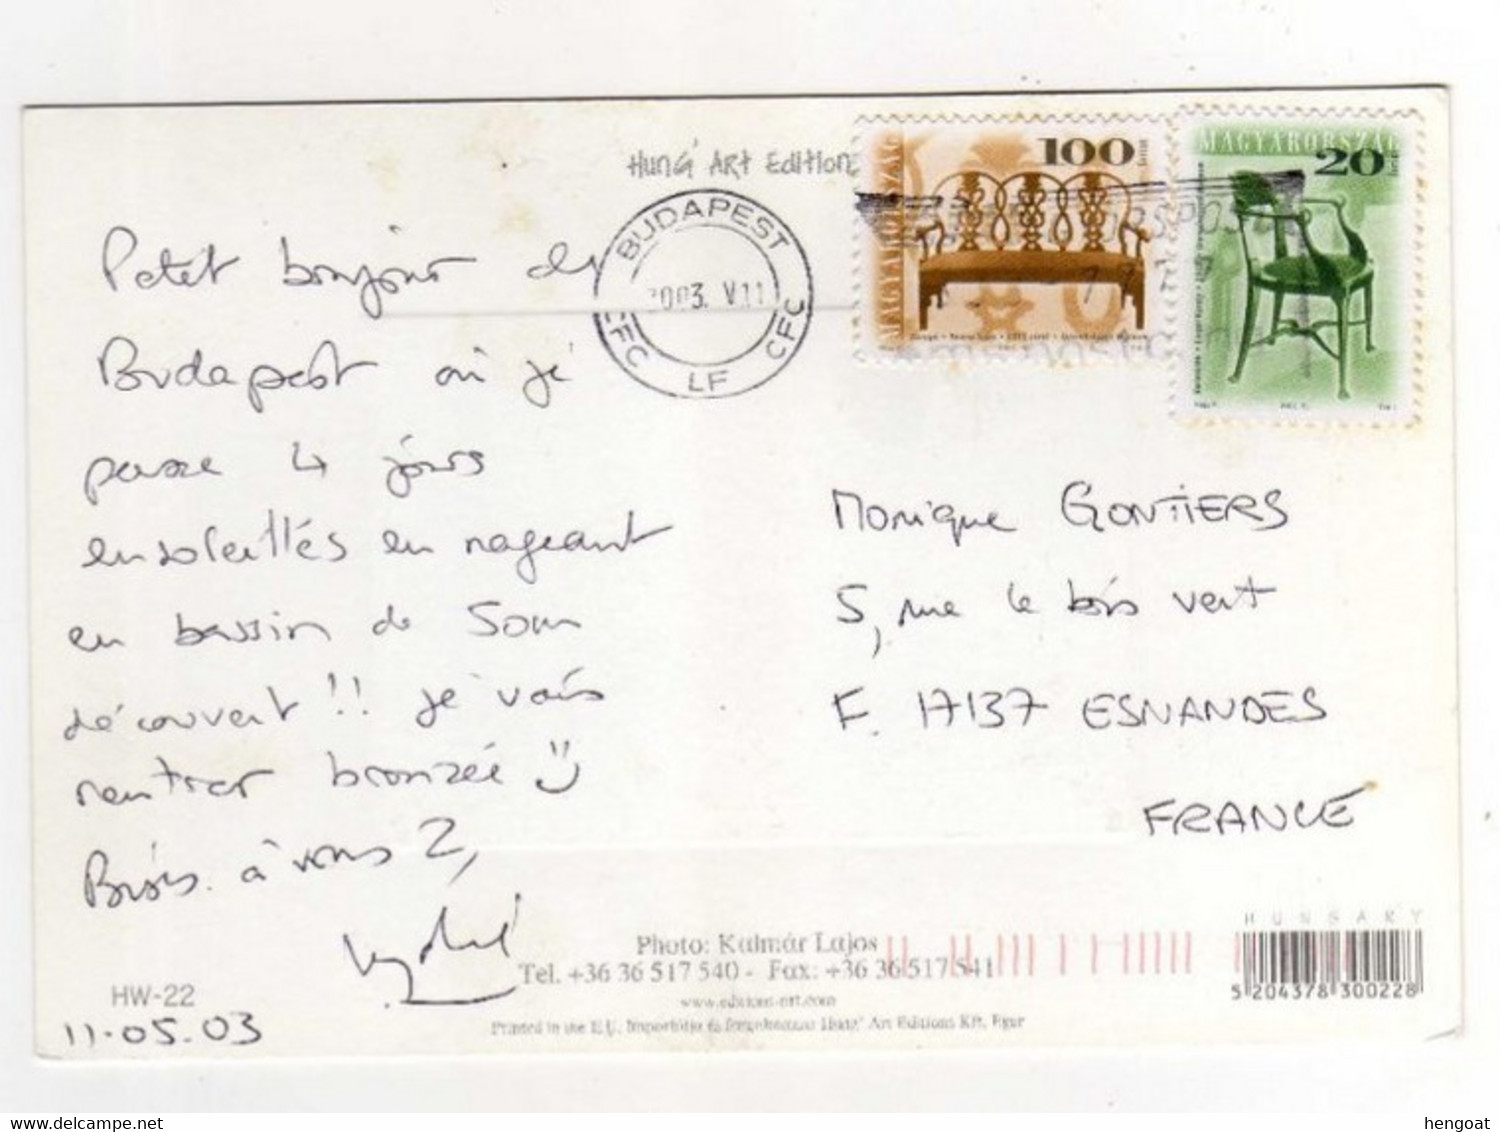 Hung' Art Edition
MAGYARORSZÁG
100
MAGYARORSZÁG
20
BUDAPEST
2003. V 11
CFC
CFC
LF
Petit bonjour de
Budapest où je
passe 4 jours
ensoleillés en nageant
en bassin de 50m
découvert !! je vais
rentrer bronzée
Bises à vous 2,
Monique GONTIERS
5, rue le bois vert
F. 17137 ESNANDES
FRANCE
HUNGARY
5 204378 300228
Photo: Kalmár Lajos
Tel. +36 36 517 540 - Fax: +36 36 517 541
www.editions-art.com
HW-22
11.05.03
delcampe.net
hengoat